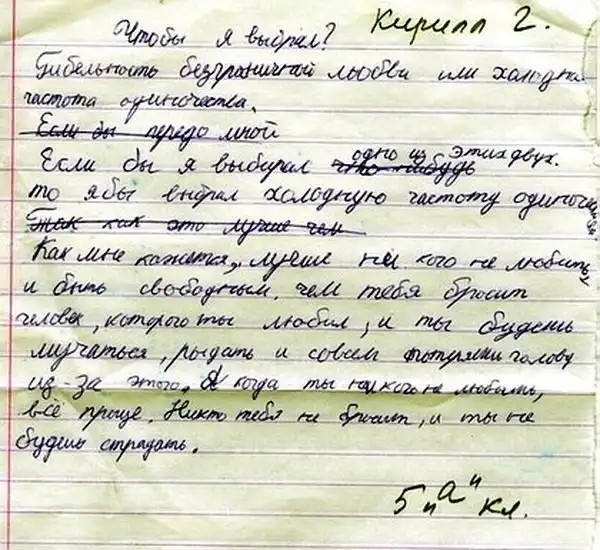 Кирилл 2.
Чтобы я выбрал?
Гибельность безграничной любви или холодная
частота одиночества.
Если бы передо мной
одно из этих двух.
Если бы я выбирал что-нибудь
то я бы выбрал холодную частоту одиночества
Так как это лучше чем
Как мне кажется, лучше ни кого не любить,
и быть свободным. чем тебя бросит
человек, которого ты любил, и ты будешь
мучаться, рыдать и совсем голову
из-за этого. А когда ты ни кого не любишь,
всё проще. Никто тебя не бросит, и ты не
будешь страдать.
5 „а" кл.